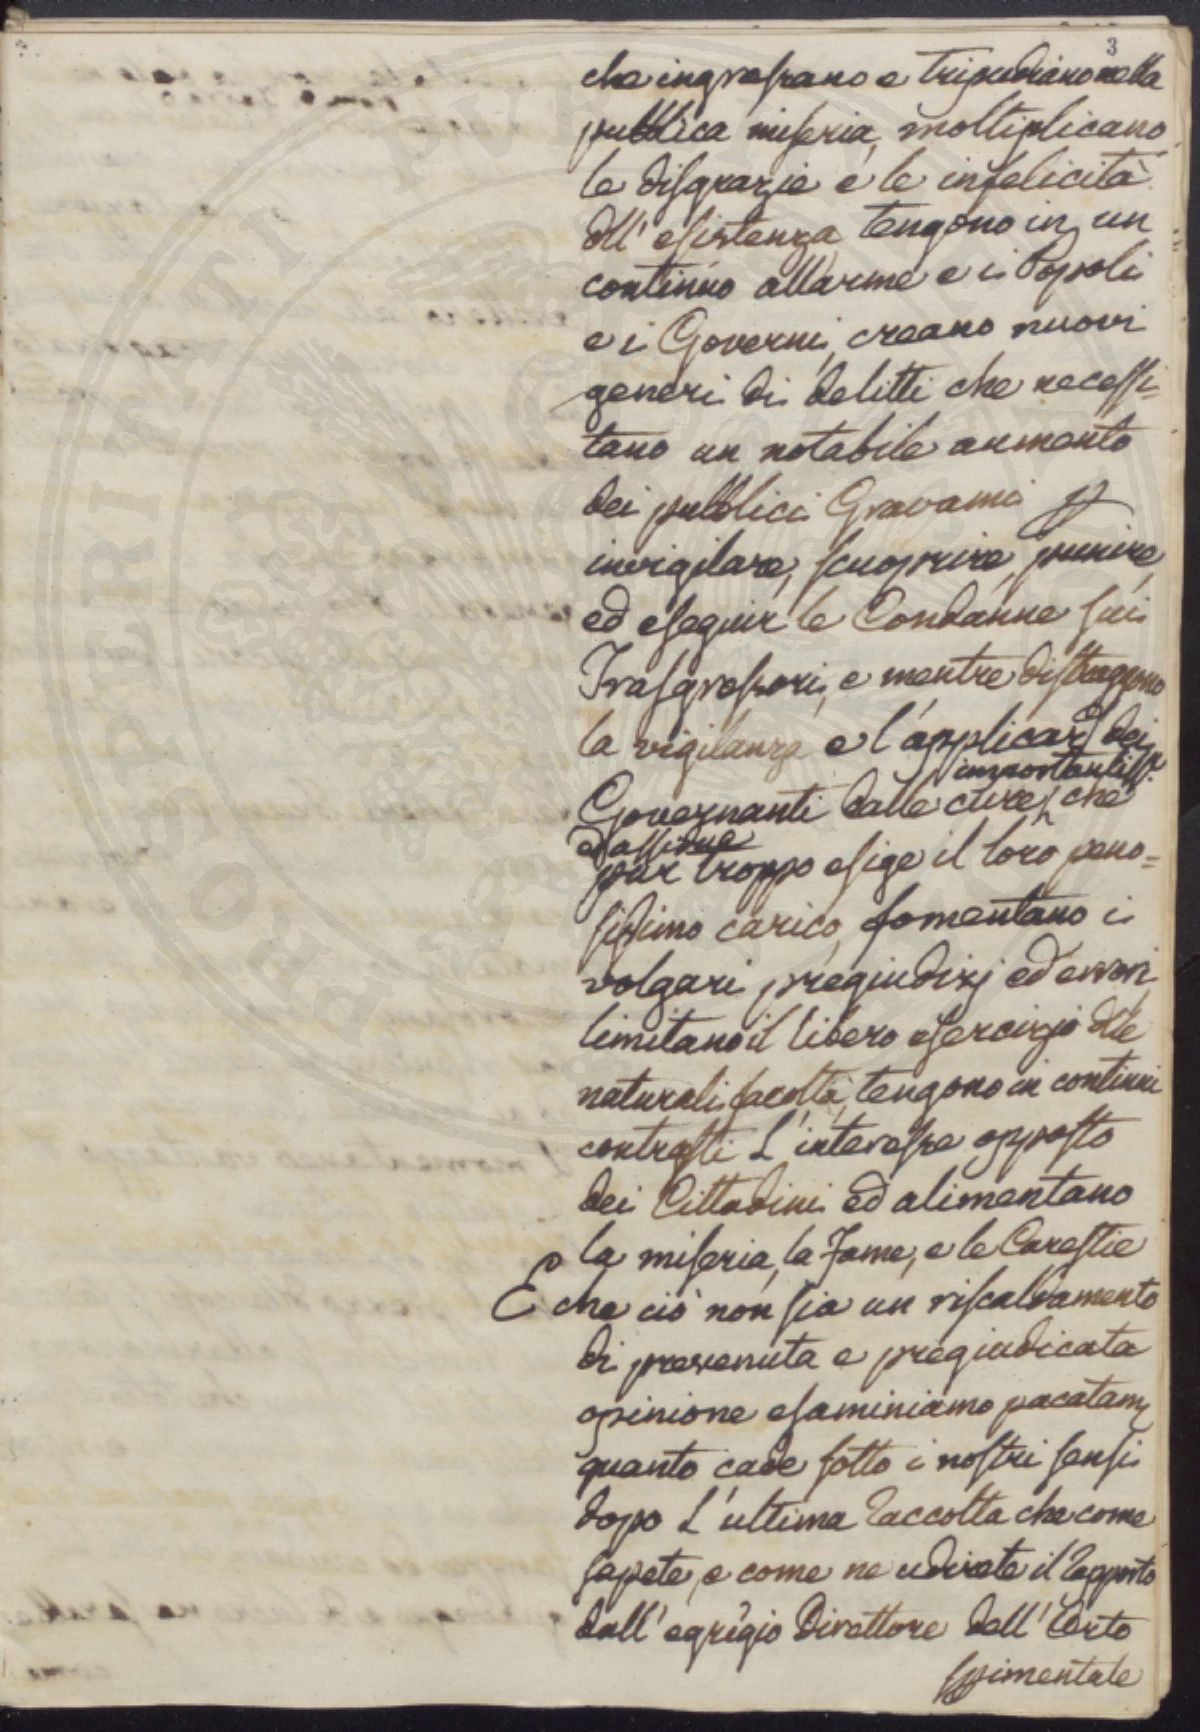 3
che ingrassano e tripudiano nella
pubblica miseria, moltiplicano
le disgrazie e le infelicità
dll' esistenza tengono in un
continuo allarme e i Popoli
e i Governi, creano nuovi
generi di delitti che necessi=
tano un notabile aumento
dei pubblici Gravami p
invigilare, scuoprire, punire,
ed eseguir le Condanne sui
Trasgressori, e mentre distraggono
la vigilanza e l'applicaz.e dei
importantiss.e
Governanti dalle cure, che
ed assidue
pur troppo esige il loro peno=
sissimo carico, fomentano i
volgari pregiudizj ed errori
limitano il libero esercizio dlle
naturali facoltà, tengono in continui
contrasti L'interesse opposto
dei Cittadini ed alimentano
la miseria, la Fame, e le Carestie
E che ciò non sia un riscaldamento
di prevenuta e pregiudicata
opinione esaminiamo pacatam.
quanto cade sotto i nostri sensi
dopo L'ultima Raccolta che come
sapete, e come ne udirete il Rapporto
dall'egregio Direttore dell'Orto
sppimentale
PROSPERITATI PVBLICAE